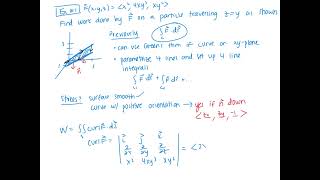 Ex #1 F(x,y,z) = <x², 4xy³, xy²>
Find work done by F on a particle traversing z=y as shown
Previously ∫ F·dr
• can use Green's thm if curve on xy-plane
• parametrize 4 lines and set up 4 line
integrals
∫ F·dr + ∫ F·dr + ...
Stokes? surface smooth ✓
curve w/ positive orientation → yes if n down
W = ∫∫ curl F · dS
curl F = | i j k |
| ∂/∂x ∂/∂y ∂/∂z | = <2
| x² 4xy³ xy² |